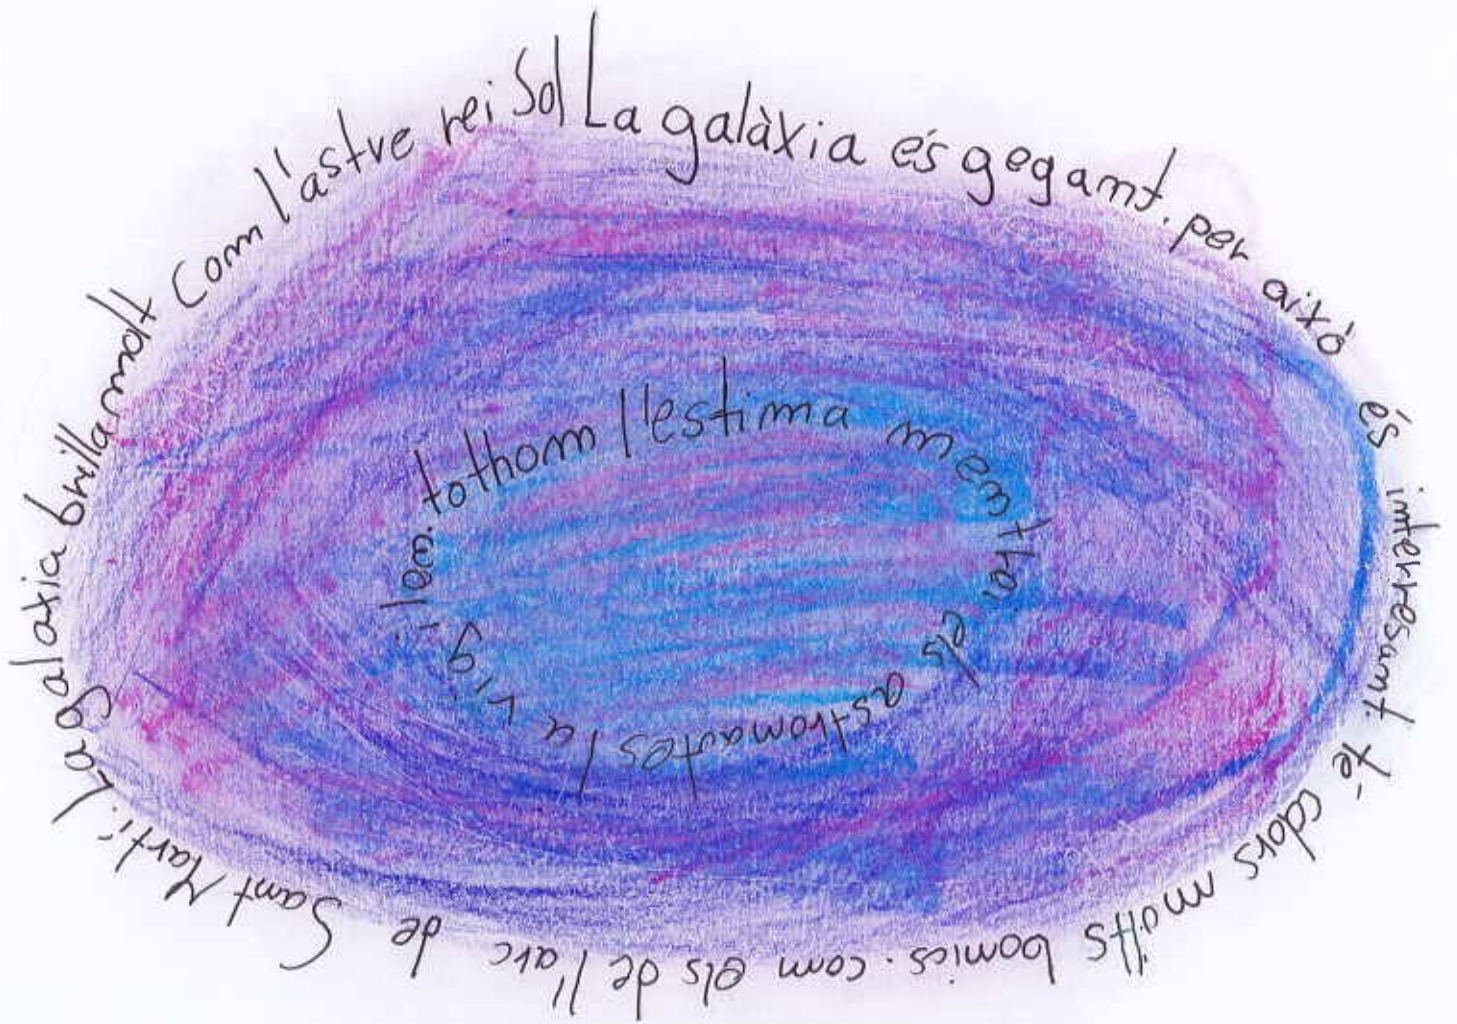 La galàxia és gegant. per això és interresant. té colors molts bonics. com els de l'arc de Sant Martí. La galatia brilla molt Com l'astre rei Sol
tothom l'estima mentre els astronautes la vigilan.